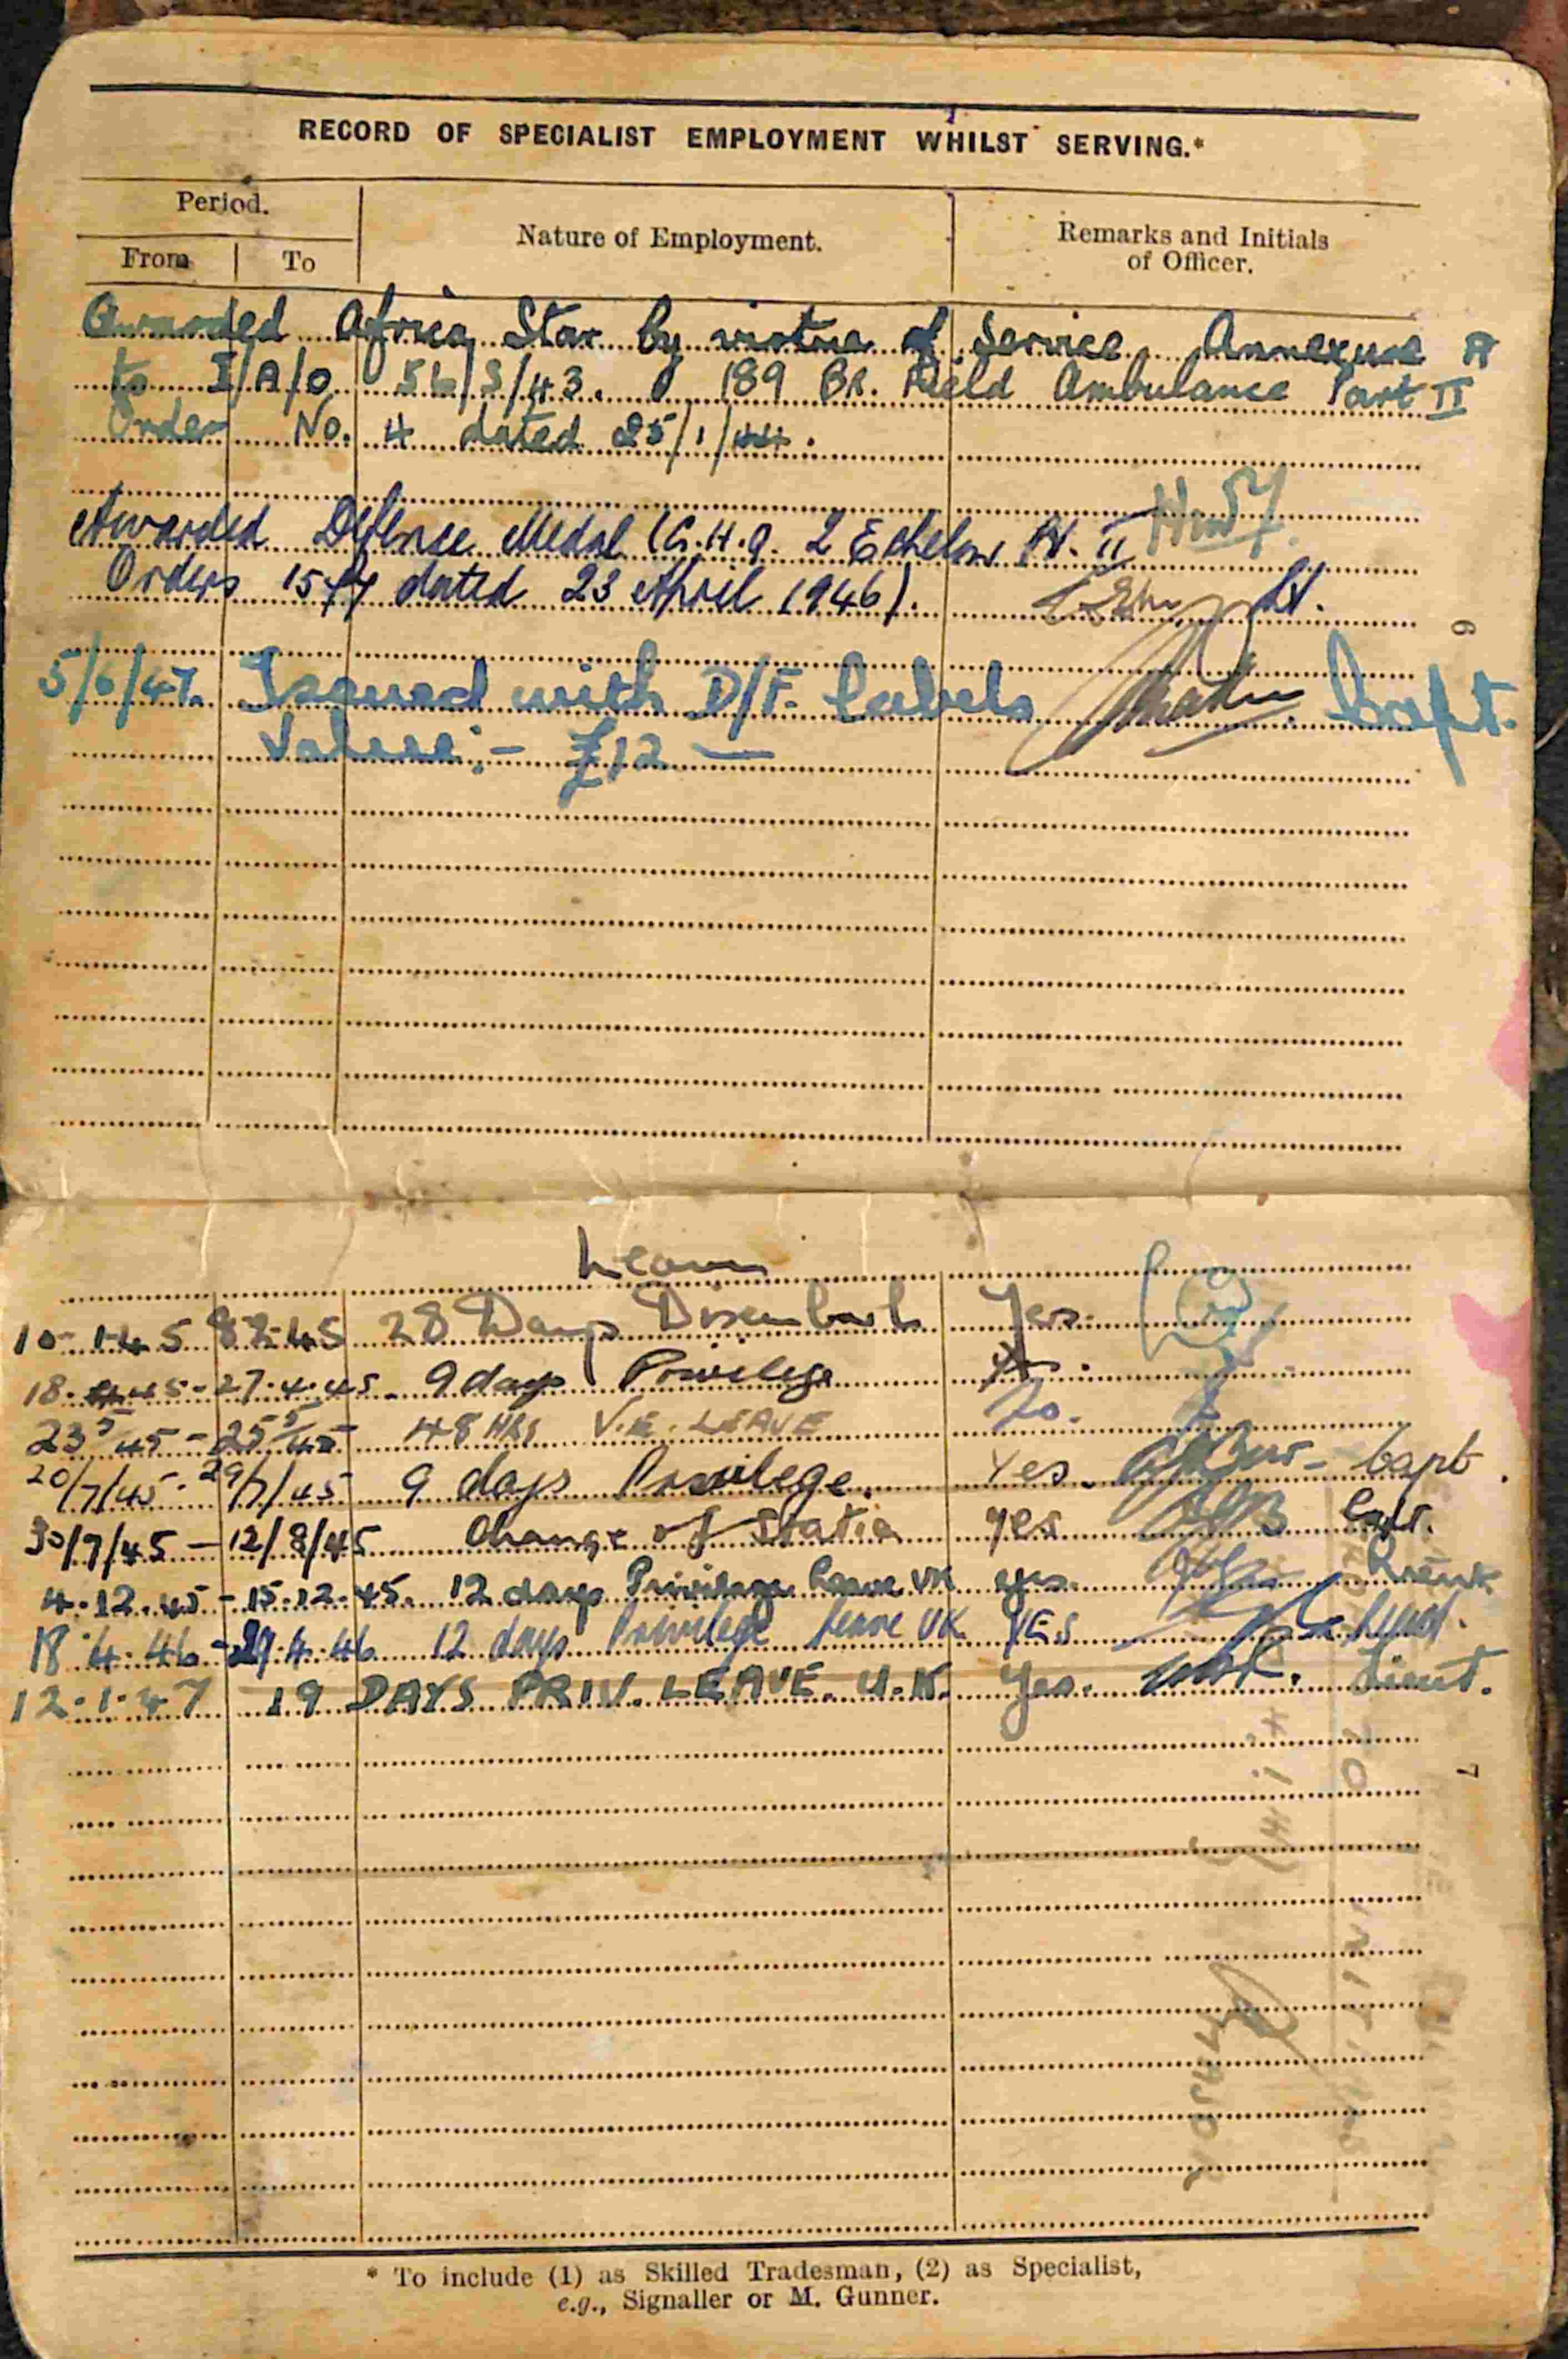 RECORD OF SPECIALIST EMPLOYMENT WHILST SERVING.*
Period.
Nature of Employment.
Remarks and Initials
of Officer.
From
To
Awarded Africa Star by virtue of Service Annexure A
to I/A/O 56/S/43. 189 BR. Field Ambulance Part II
Order No. 4 dated 25/1/44.
Awarded Defence Medal (G.H.Q. 2 Echelon Pt. II
Orders dated 23 April 1946).
Lt.
6
5/6/47. Issued with D/F. labels Capt.
Value:- £12 —
Leave
10-1-45 8-2-45 28 Days Disembark Yes.
18.4.45-27.4.45. 9 days Privilege
23 5 45 - 25 5 45 48 HRS V.E. LEAVE
20/7/45 - 29/7/45 9 days Privilege. Yes. Capt.
30/7/45 - 12/8/45 Change of Statio yes Capt.
4.12.45 - 15.12.45. 12 days Privilege Leave UK yes.
18.4.46-29.4.46 12 days Privilege Leave UK YES
12-1-47 19 DAYS PRIV. LEAVE. U.K. Yes. Lieut.
7
MAJOR
* To include (1) as Skilled Tradesman, (2) as Specialist,
e.g., Signaller or M. Gunner.